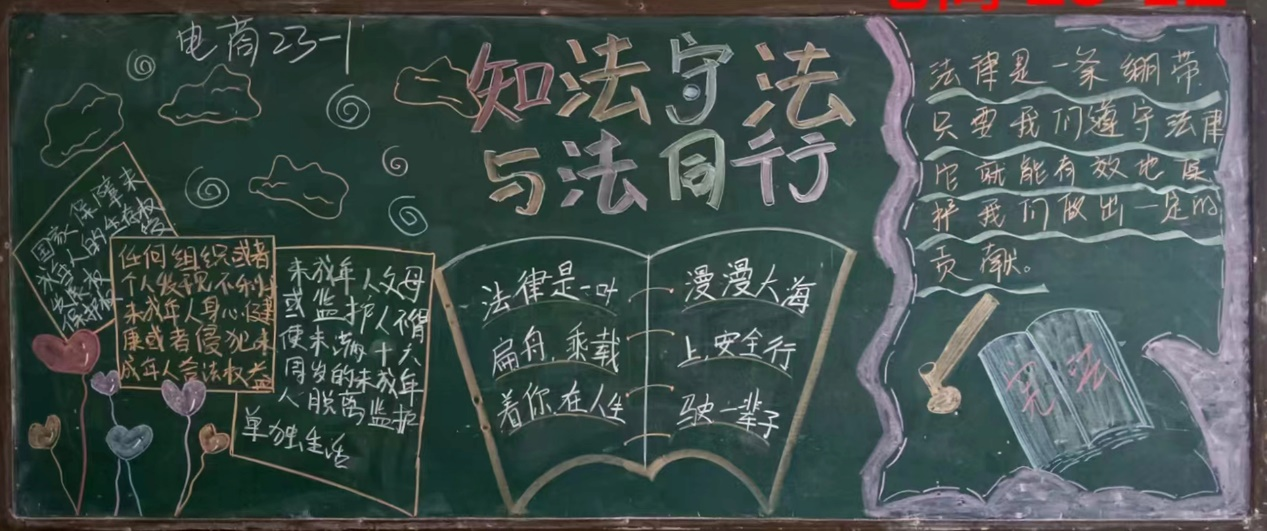 电商23-1
知法守法
与法同行
国家保障未
成年人的生存权
任何组织或者
个人发现不利
未成年人身心健
康或者侵犯未
成年人合法权益
未成年人父母
或监护人不得
使未满十六
周岁的未成年
人脱离监护
单独生活
法律是一叶
扁舟,乘载
着你在人生
漫漫大海
上,安全行
驶一辈子
法律是一条绷带
只要我们遵守法律
它就能有效地
护我们做出一定的
贡献。
宪法